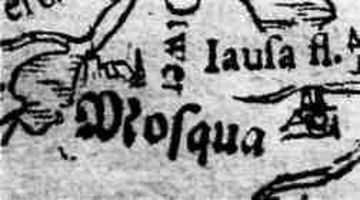 Iauſa fl.
Moſqua